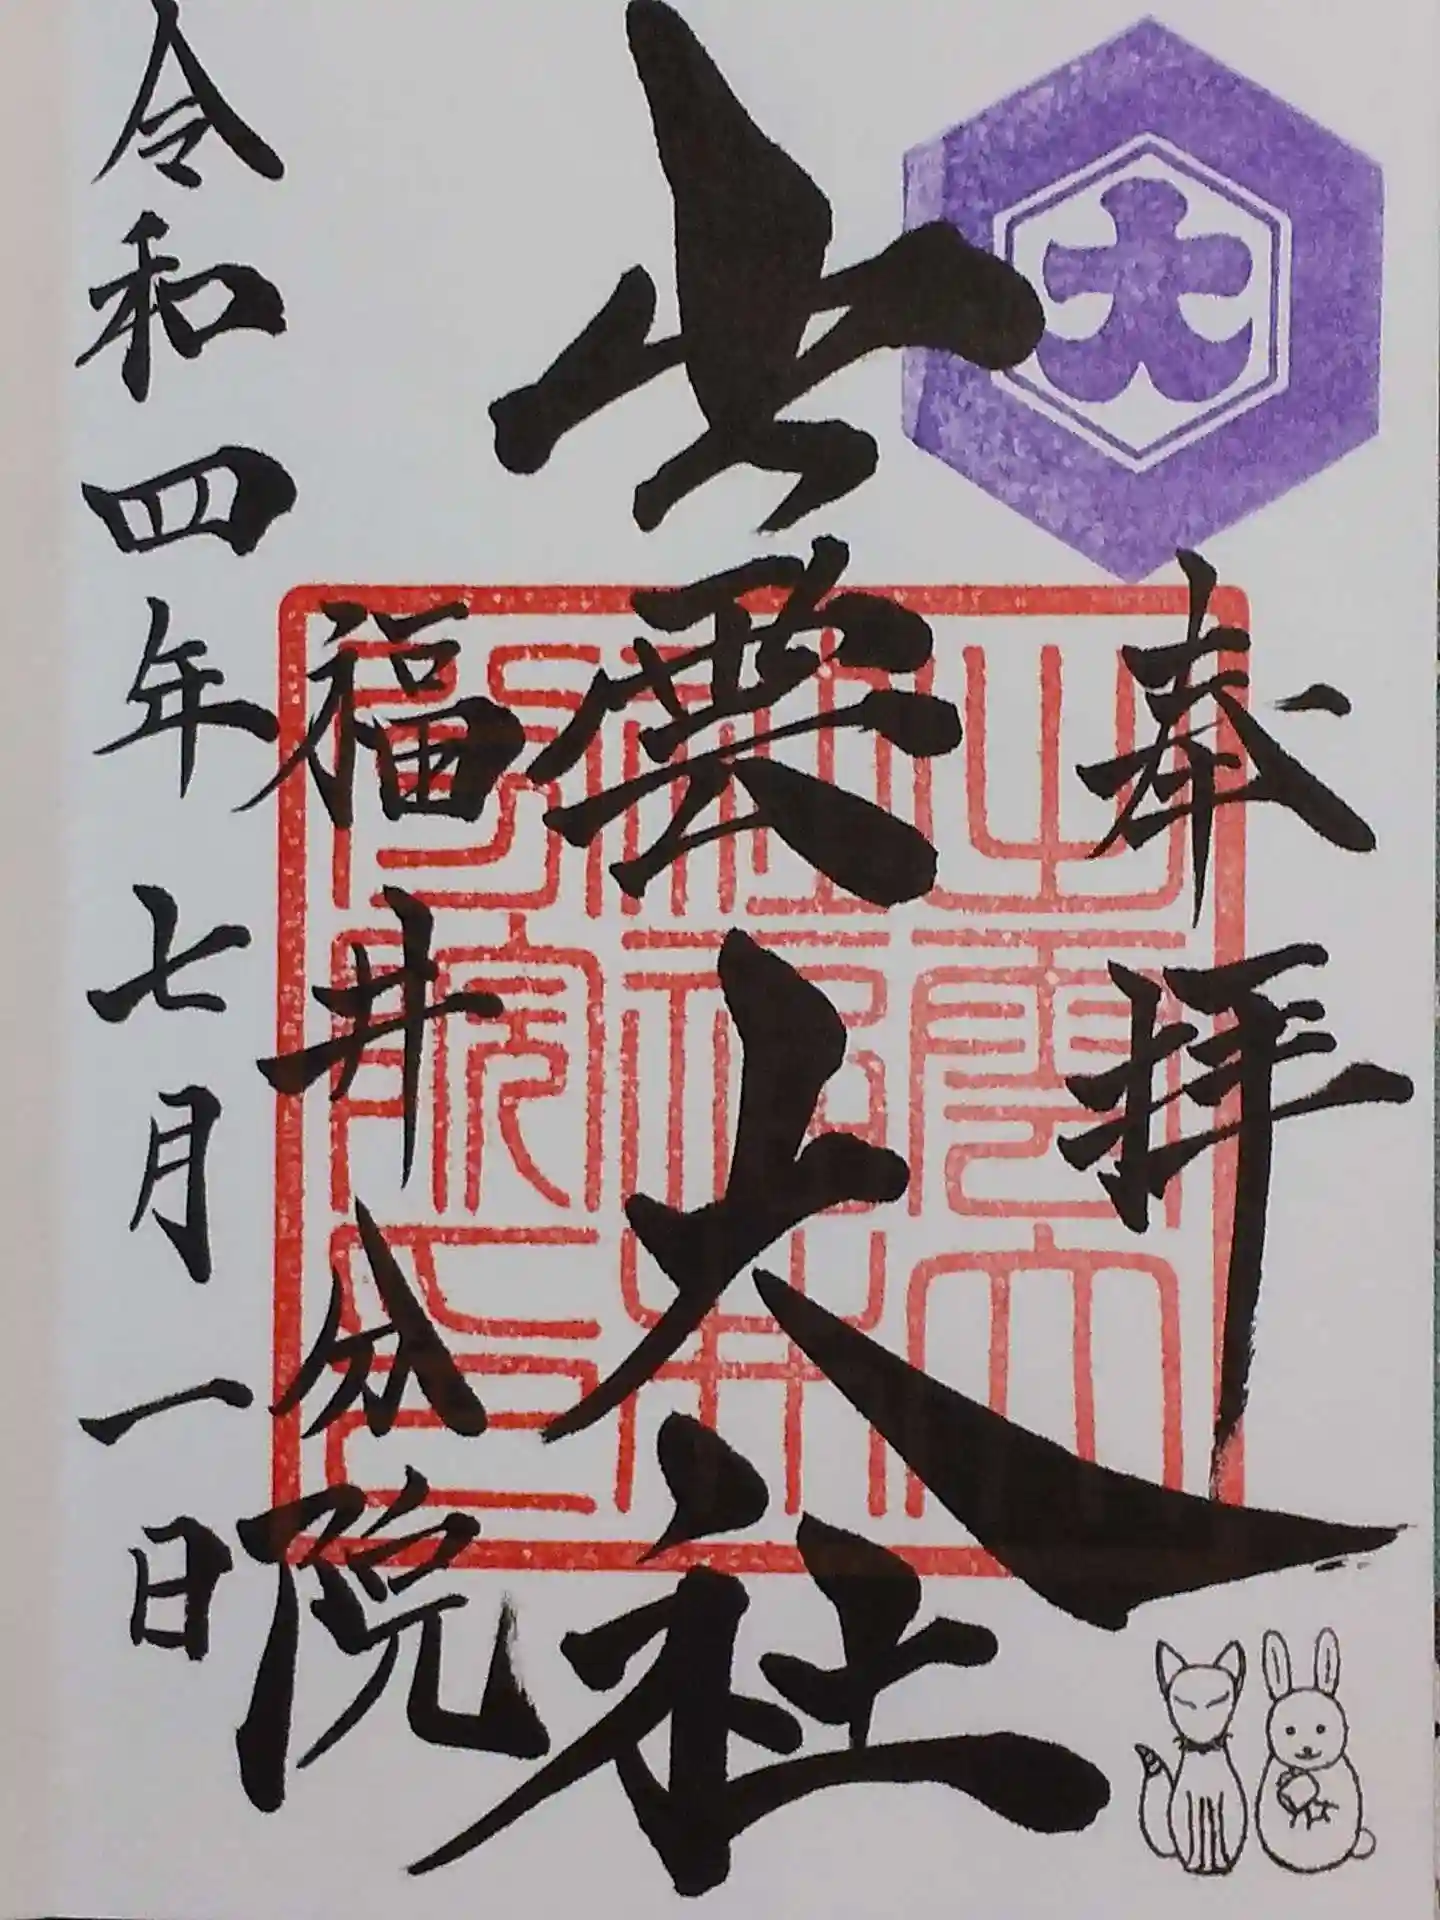 大
奉拝
出雲大社
福井分院
令和四年七月一日
出雲大
社福井
分院印